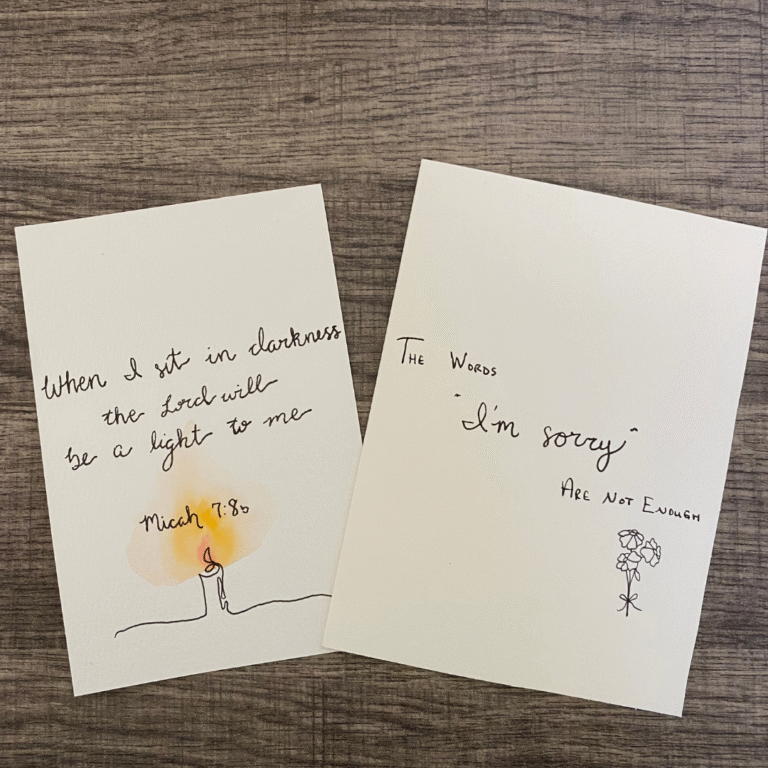 When I sit in darkness
the Lord will
be a light to me
Micah 7:8b
The Words
"I'm sorry"
Are Not Enough